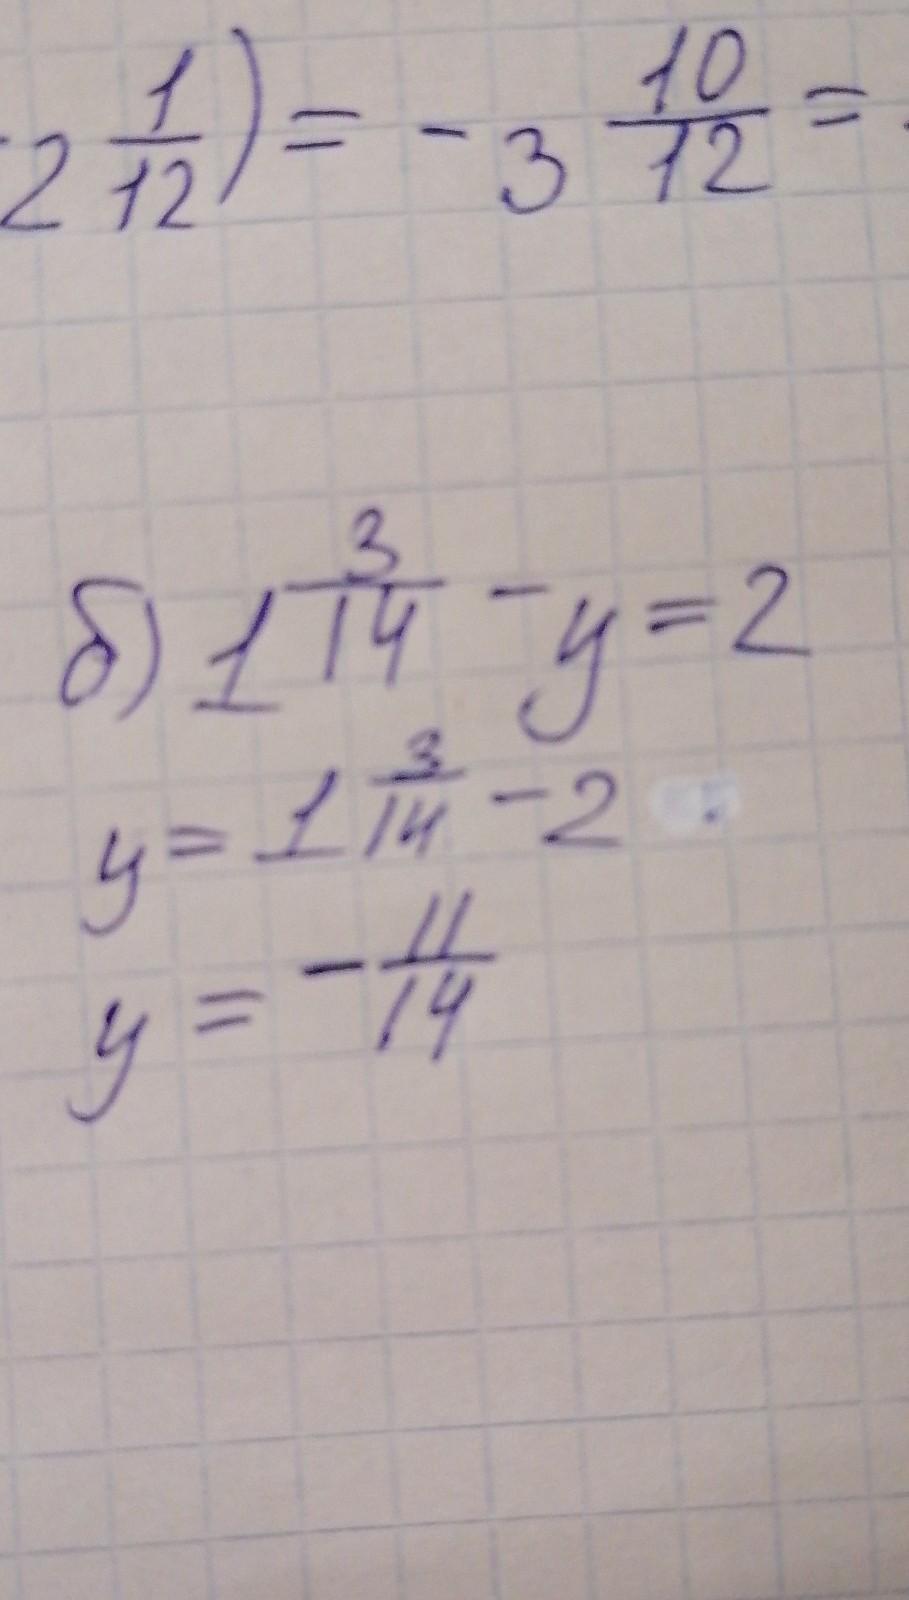 2 1/12) = - 3 10/12 =
б) 1 3/14 - y = 2
y = 1 3/14 - 2
y = - 11/14